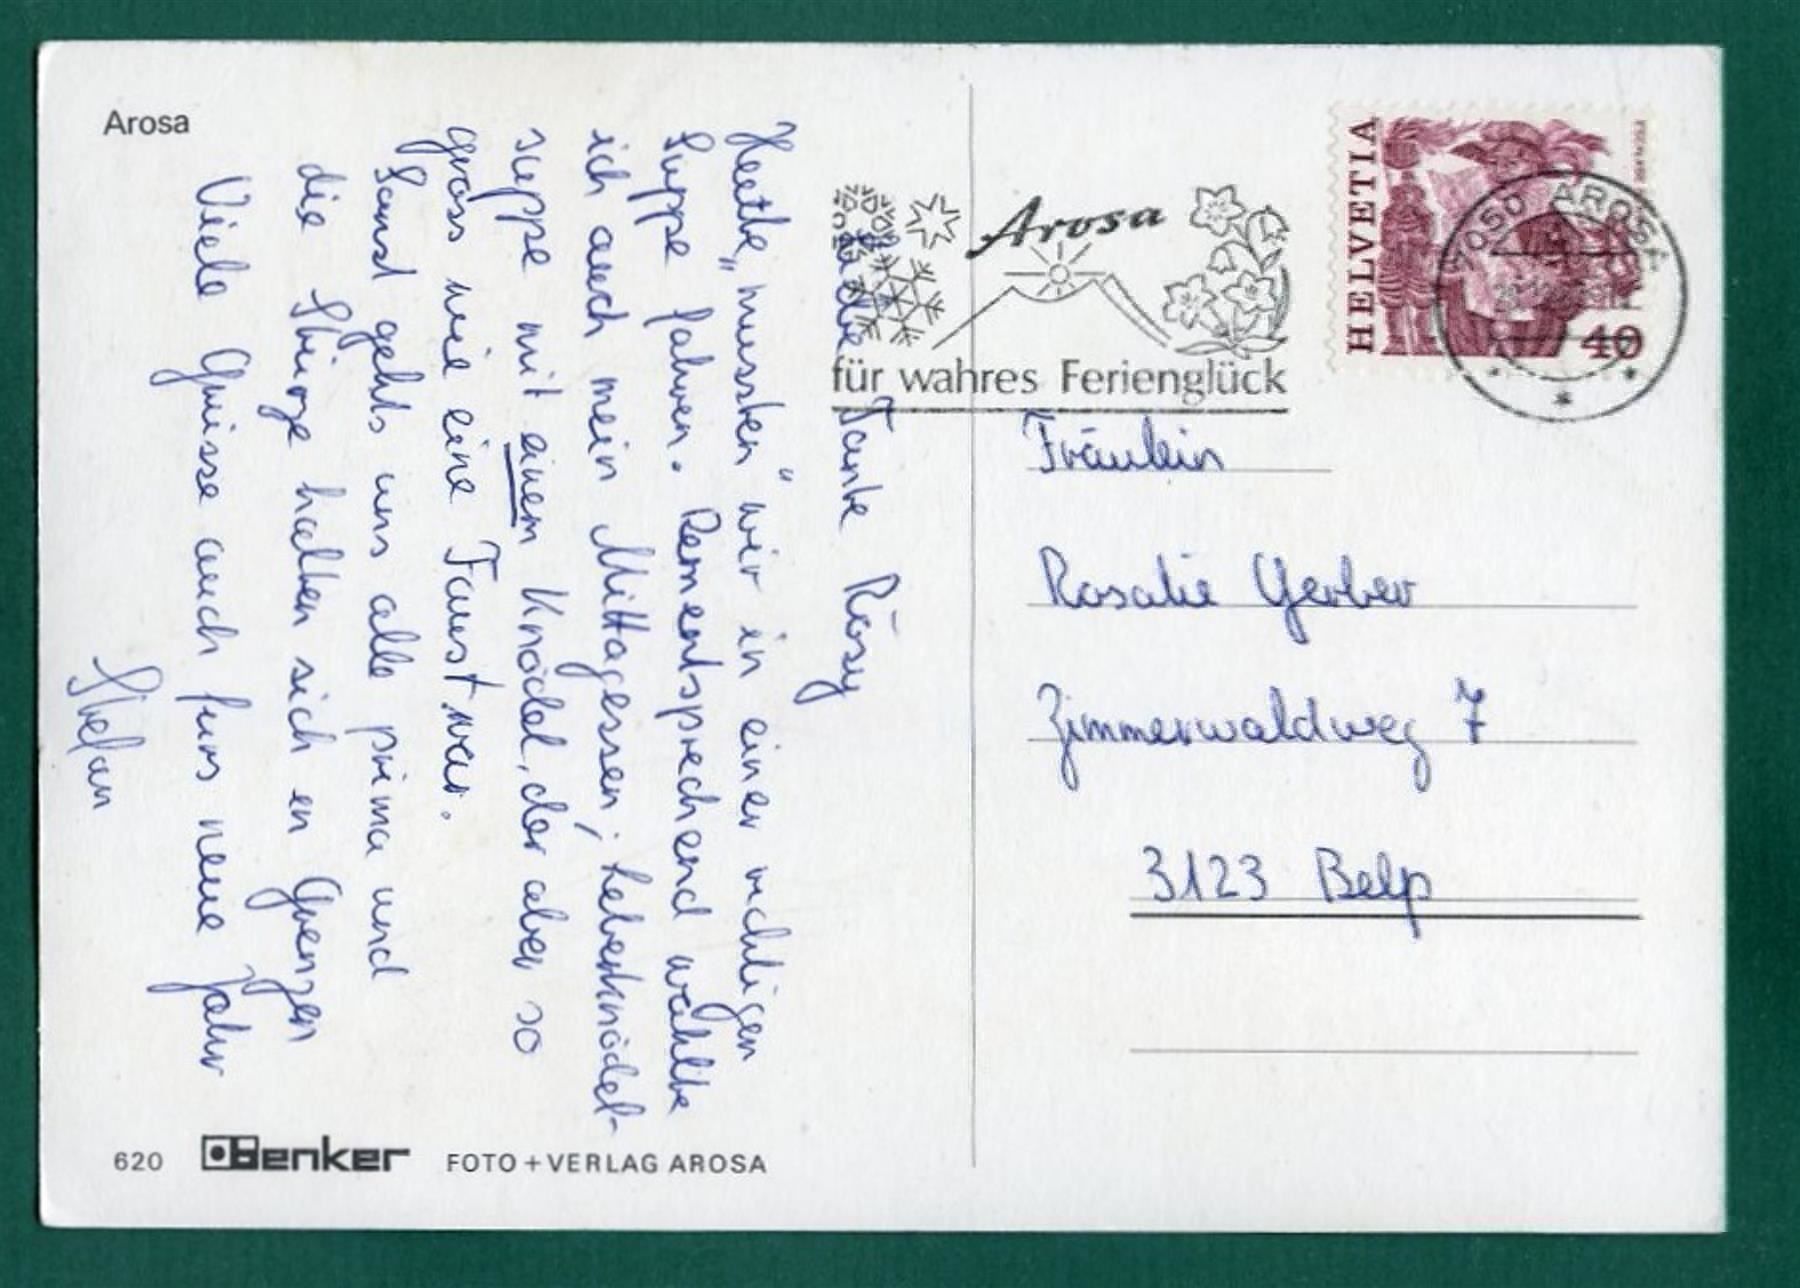 Arosa
Liebe Tante Rösy
Heute „mussten" wir in einer richtigen
Suppe fahren. Dementsprechend wählte
ich auch mein Mittagessen; Leberknödel-
suppe mit einem Knödel, der aber so
gross wie eine Faust war.
Sonst gehts uns alle prima und
die Stürze halten sich in Grenzen
Viele Grüsse auch furs neue Jahr
Stefan
620 Benker FOTO + VERLAG AROSA
Arosa
für wahres Ferienglück
HELVETIA
40
7050 AROSA
Fräulein
Rosalie Gerber
Zimmerwaldweg 7
3123 Belp